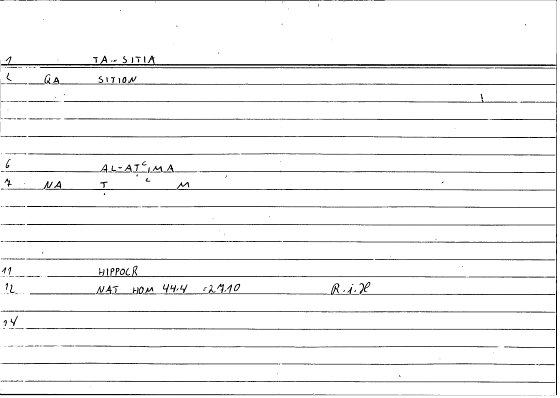 1 TA-SITIA
2 QA SITION
6 AL-AṬʿIMA
7 NA Ṭ ʿ M
11 HIPPOCR
12 NAT HOM 44.4 :27.10 R.i.H
14